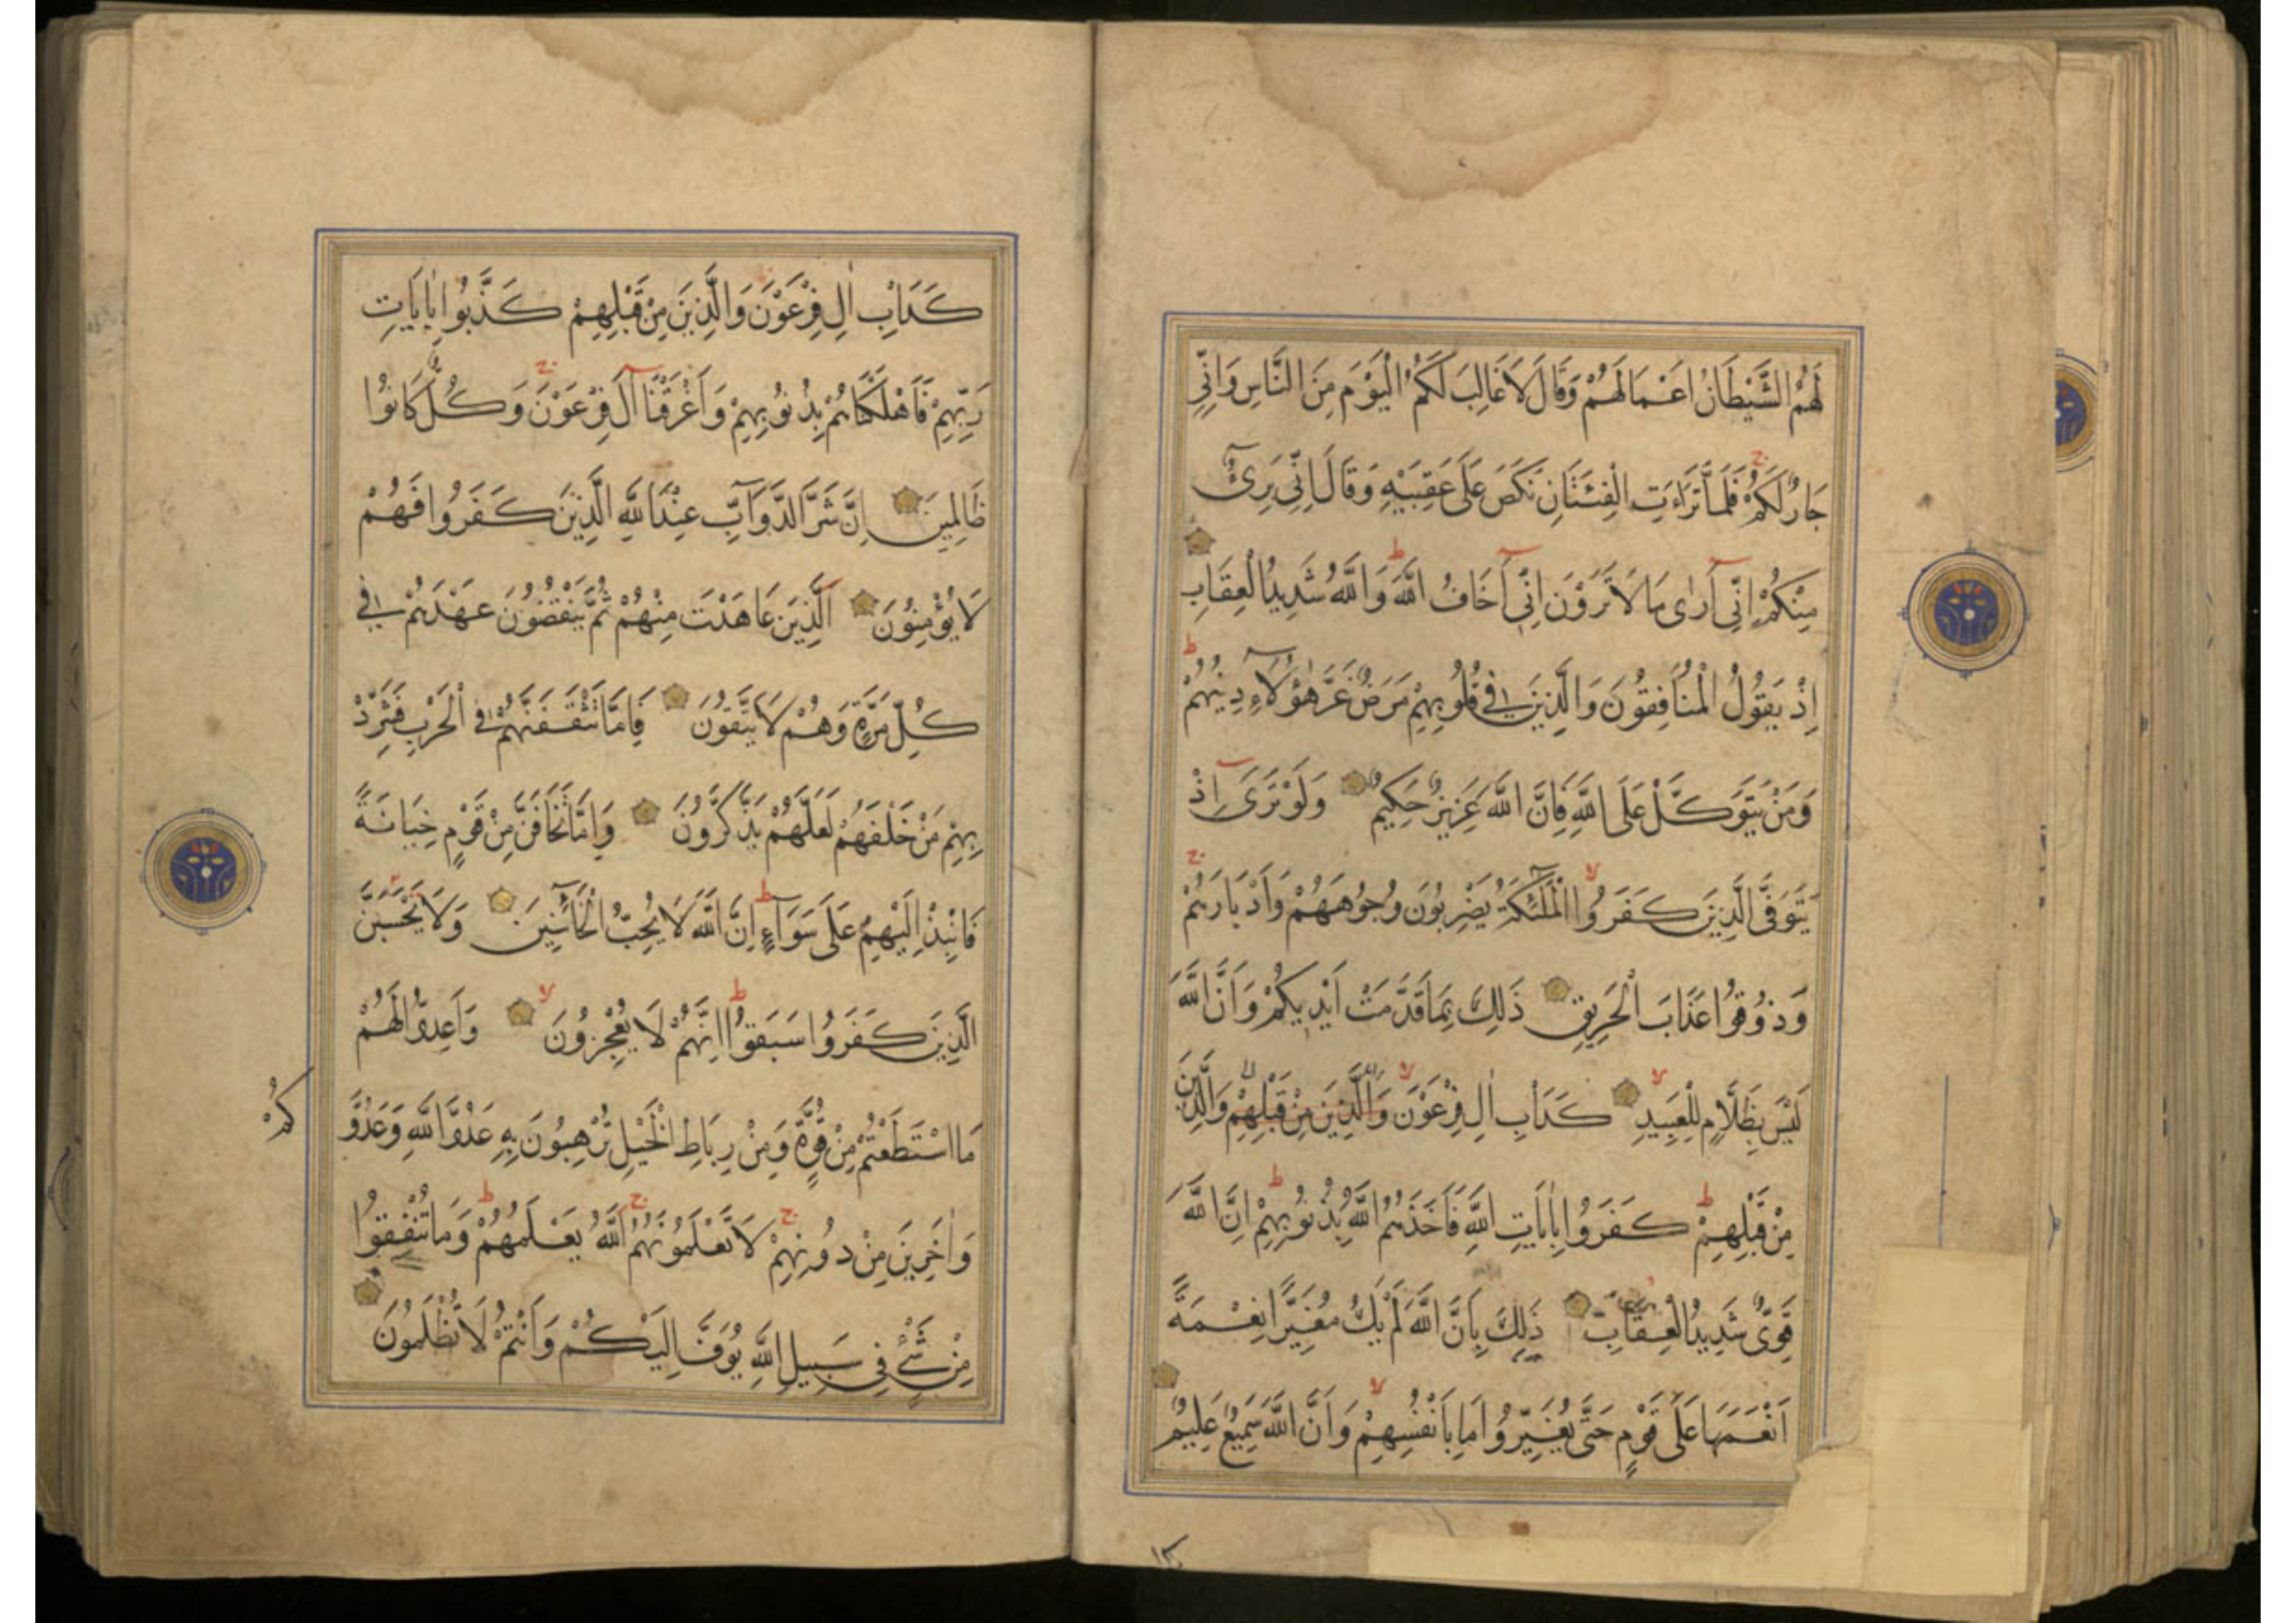 لَهُمُ الشَّيْطَانُ اَعْمَالَهُمْ وَقَالَ لَا غَالِبَ لَكُمُ الْيَوْمَ مِنَ النَّاسِ وَاِنِّي
جَارٌ لَكُمْ فَلَمَّا تَرَاءَتِ الْفِئَتَانِ نَكَصَ عَلَى عَقِبَيْهِ وَقَالَ اِنِّي بَرِئٌ
مِنْكُمْ اِنِّي اَرٰى مَا لَا تَرَوْنَ اِنِّي اَخَافُ اللَّهَ وَاللَّهُ شَدِيدُ الْعِقَابِ
اِذْ يَقُولُ الْمُنَافِقُونَ وَالَّذِينَ فِي قُلُوبِهِمْ مَرَضٌ غَرَّ هٰؤُلَاءِ دِينُهُمْ
وَمَنْ يَتَوَكَّلْ عَلَى اللَّهِ فَاِنَّ اللَّهَ عَزِيزٌ حَكِيمٌ وَلَوْ تَرَى اِذْ
يَتَوَفَّى الَّذِينَ كَفَرُوا الْمَلٰئِكَةُ يَضْرِبُونَ وُجُوهَهُمْ وَاَدْبَارَهُمْ
وَذُوقُوا عَذَابَ الْحَرِيقِ ذَلِكَ بِمَا قَدَّمَتْ اَيْدِيكُمْ وَاَنَّ اللَّهَ
لَيْسَ بِظَلَّامٍ لِلْعَبِيدِ كَدَاْبِ اٰلِ فِرْعَوْنَ وَالَّذِينَ مِنْ قَبْلِهِمْ وَالَّذِينَ
مِنْ قَبْلِهِمْ كَفَرُوا بِاٰيَاتِ اللَّهِ فَاَخَذَهُمُ اللَّهُ بِذُنُوبِهِمْ اِنَّ اللَّهَ
قَوِيٌّ شَدِيدُ الْعِقَابِ ذَلِكَ بِاَنَّ اللَّهَ لَمْ يَكُ مُغَيِّرًا نِعْمَةً
اَنْعَمَهَا عَلَى قَوْمٍ حَتَّى يُغَيِّرُوا مَا بِاَنْفُسِهِمْ وَاَنَّ اللَّهَ سَمِيعٌ عَلِيمٌ
كَدَاْبِ اٰلِ فِرْعَوْنَ وَالَّذِينَ مِنْ قَبْلِهِمْ كَذَّبُوا بِاٰيَاتِ
رَبِّهِمْ فَاَهْلَكْنَاهُمْ بِذُنُوبِهِمْ وَاَغْرَقْنَا اٰلَ فِرْعَوْنَ وَكُلٌّ كَانُوا
ظَالِمِينَ اِنَّ شَرَّ الدَّوَآبِّ عِنْدَ اللَّهِ الَّذِينَ كَفَرُوا فَهُمْ
لَا يُؤْمِنُونَ الَّذِينَ عَاهَدْتَ مِنْهُمْ ثُمَّ يَنْقُضُونَ عَهْدَهُمْ فِي
كُلِّ مَرَّةٍ وَهُمْ لَا يَتَّقُونَ فَاِمَّا تَثْقَفَنَّهُمْ فِي الْحَرْبِ فَشَرِّدْ
بِهِمْ مَنْ خَلْفَهُمْ لَعَلَّهُمْ يَذَّكَّرُونَ وَاِمَّا تَخَافَنَّ مِنْ قَوْمٍ خِيَانَةً
فَانْبِذْ اِلَيْهِمْ عَلَى سَوَآءٍ اِنَّ اللَّهَ لَا يُحِبُّ الْخَآئِنِينَ وَلَا يَحْسَبَنَّ
الَّذِينَ كَفَرُوا سَبَقُوا اِنَّهُمْ لَا يُعْجِزُونَ وَاَعِدُّوا لَهُمْ
مَا اسْتَطَعْتُمْ مِنْ قُوَّةٍ وَمِنْ رِبَاطِ الْخَيْلِ تُرْهِبُونَ بِهِ عَدُوَّ اللَّهِ وَعَدُوَّ
كُمْ
وَاٰخَرِينَ مِنْ دُونِهِمْ لَا تَعْلَمُونَهُمُ اللَّهُ يَعْلَمُهُمْ وَمَا تُنْفِقُوا
مِنْ شَيْءٍ فِي سَبِيلِ اللَّهِ يُوَفَّ اِلَيْكُمْ وَاَنْتُمْ لَا تُظْلَمُونَ